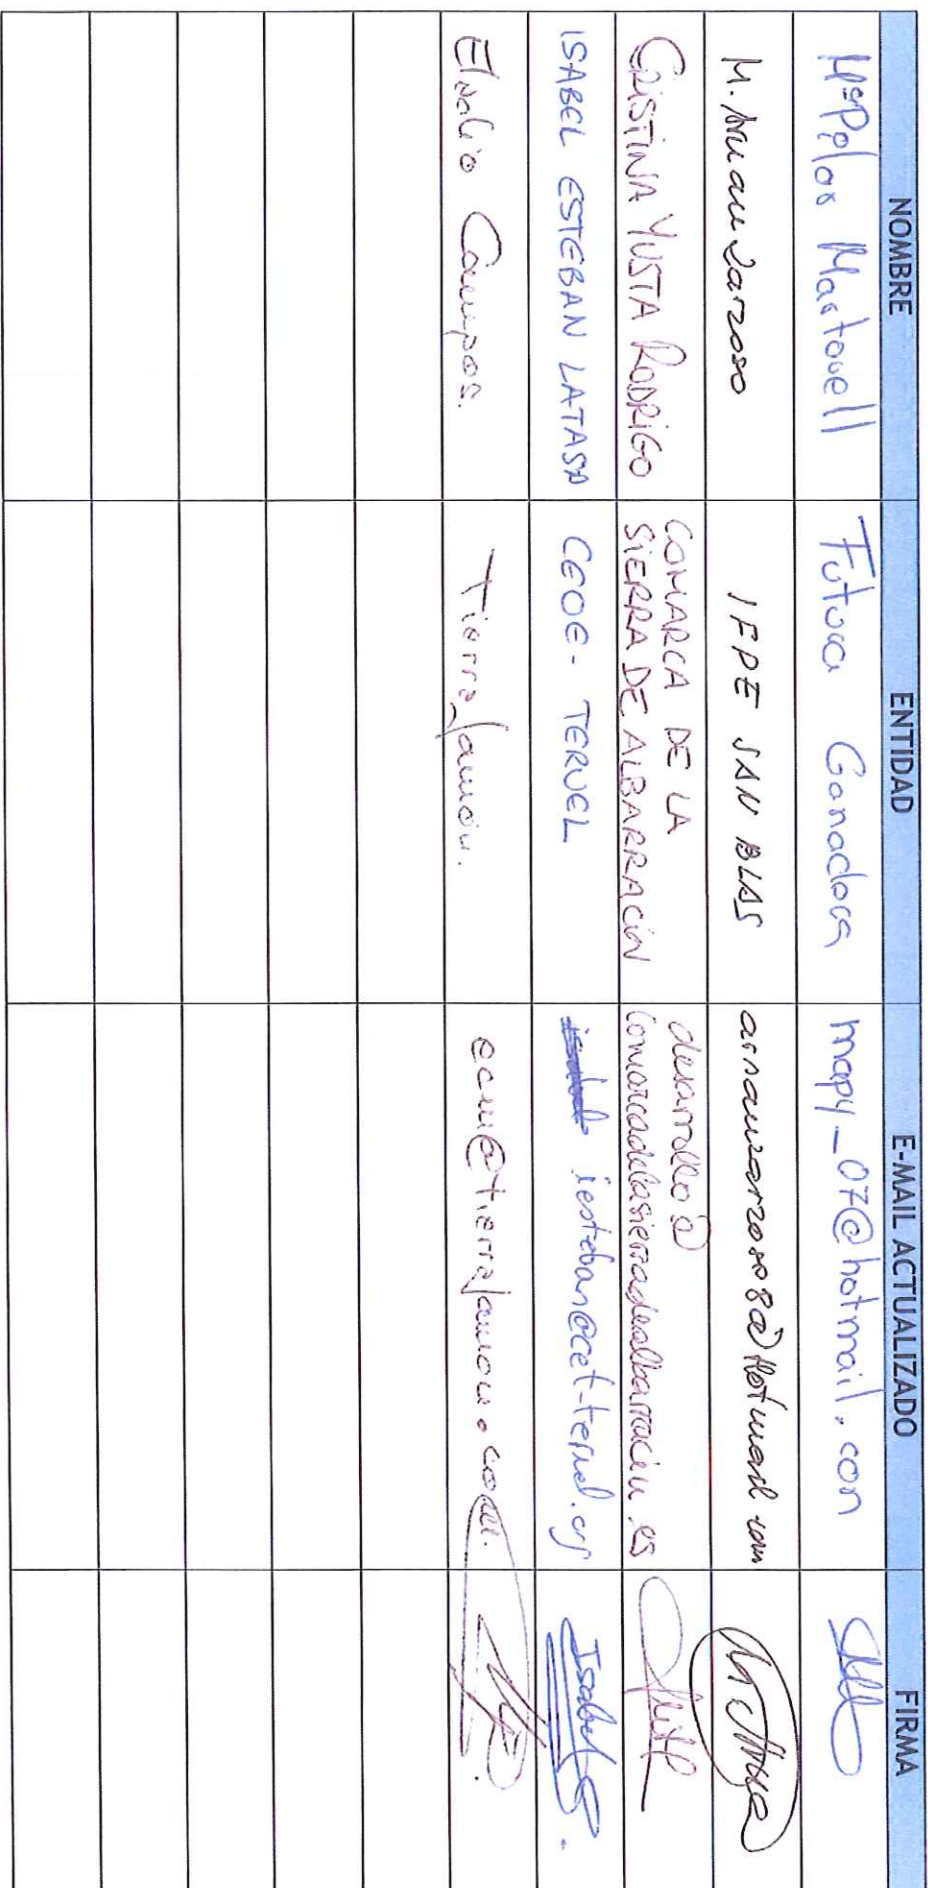 NOMBRE ENTIDAD E-MAIL ACTUALIZADO FIRMA
Mª Pilar Martorell Futura Ganadora mapy_07@hotmail.con
M. Arnau Zarzoso IFPE SAN BLAS arnauzarzoso8@Hotmail com
CRISTINA YUSTA RODRIGO COMARCA DE LA SIERRA DE ALBARRACÍN desarrollo@
comarcadelasierradealbarracin.es
ISABEL ESTEBAN LATASA CEOE-TERUEL iesteban@cet-teruel.org Isabel E.
Eladio Campos. Tierra Jamón. ecm@tierrajamon.com.